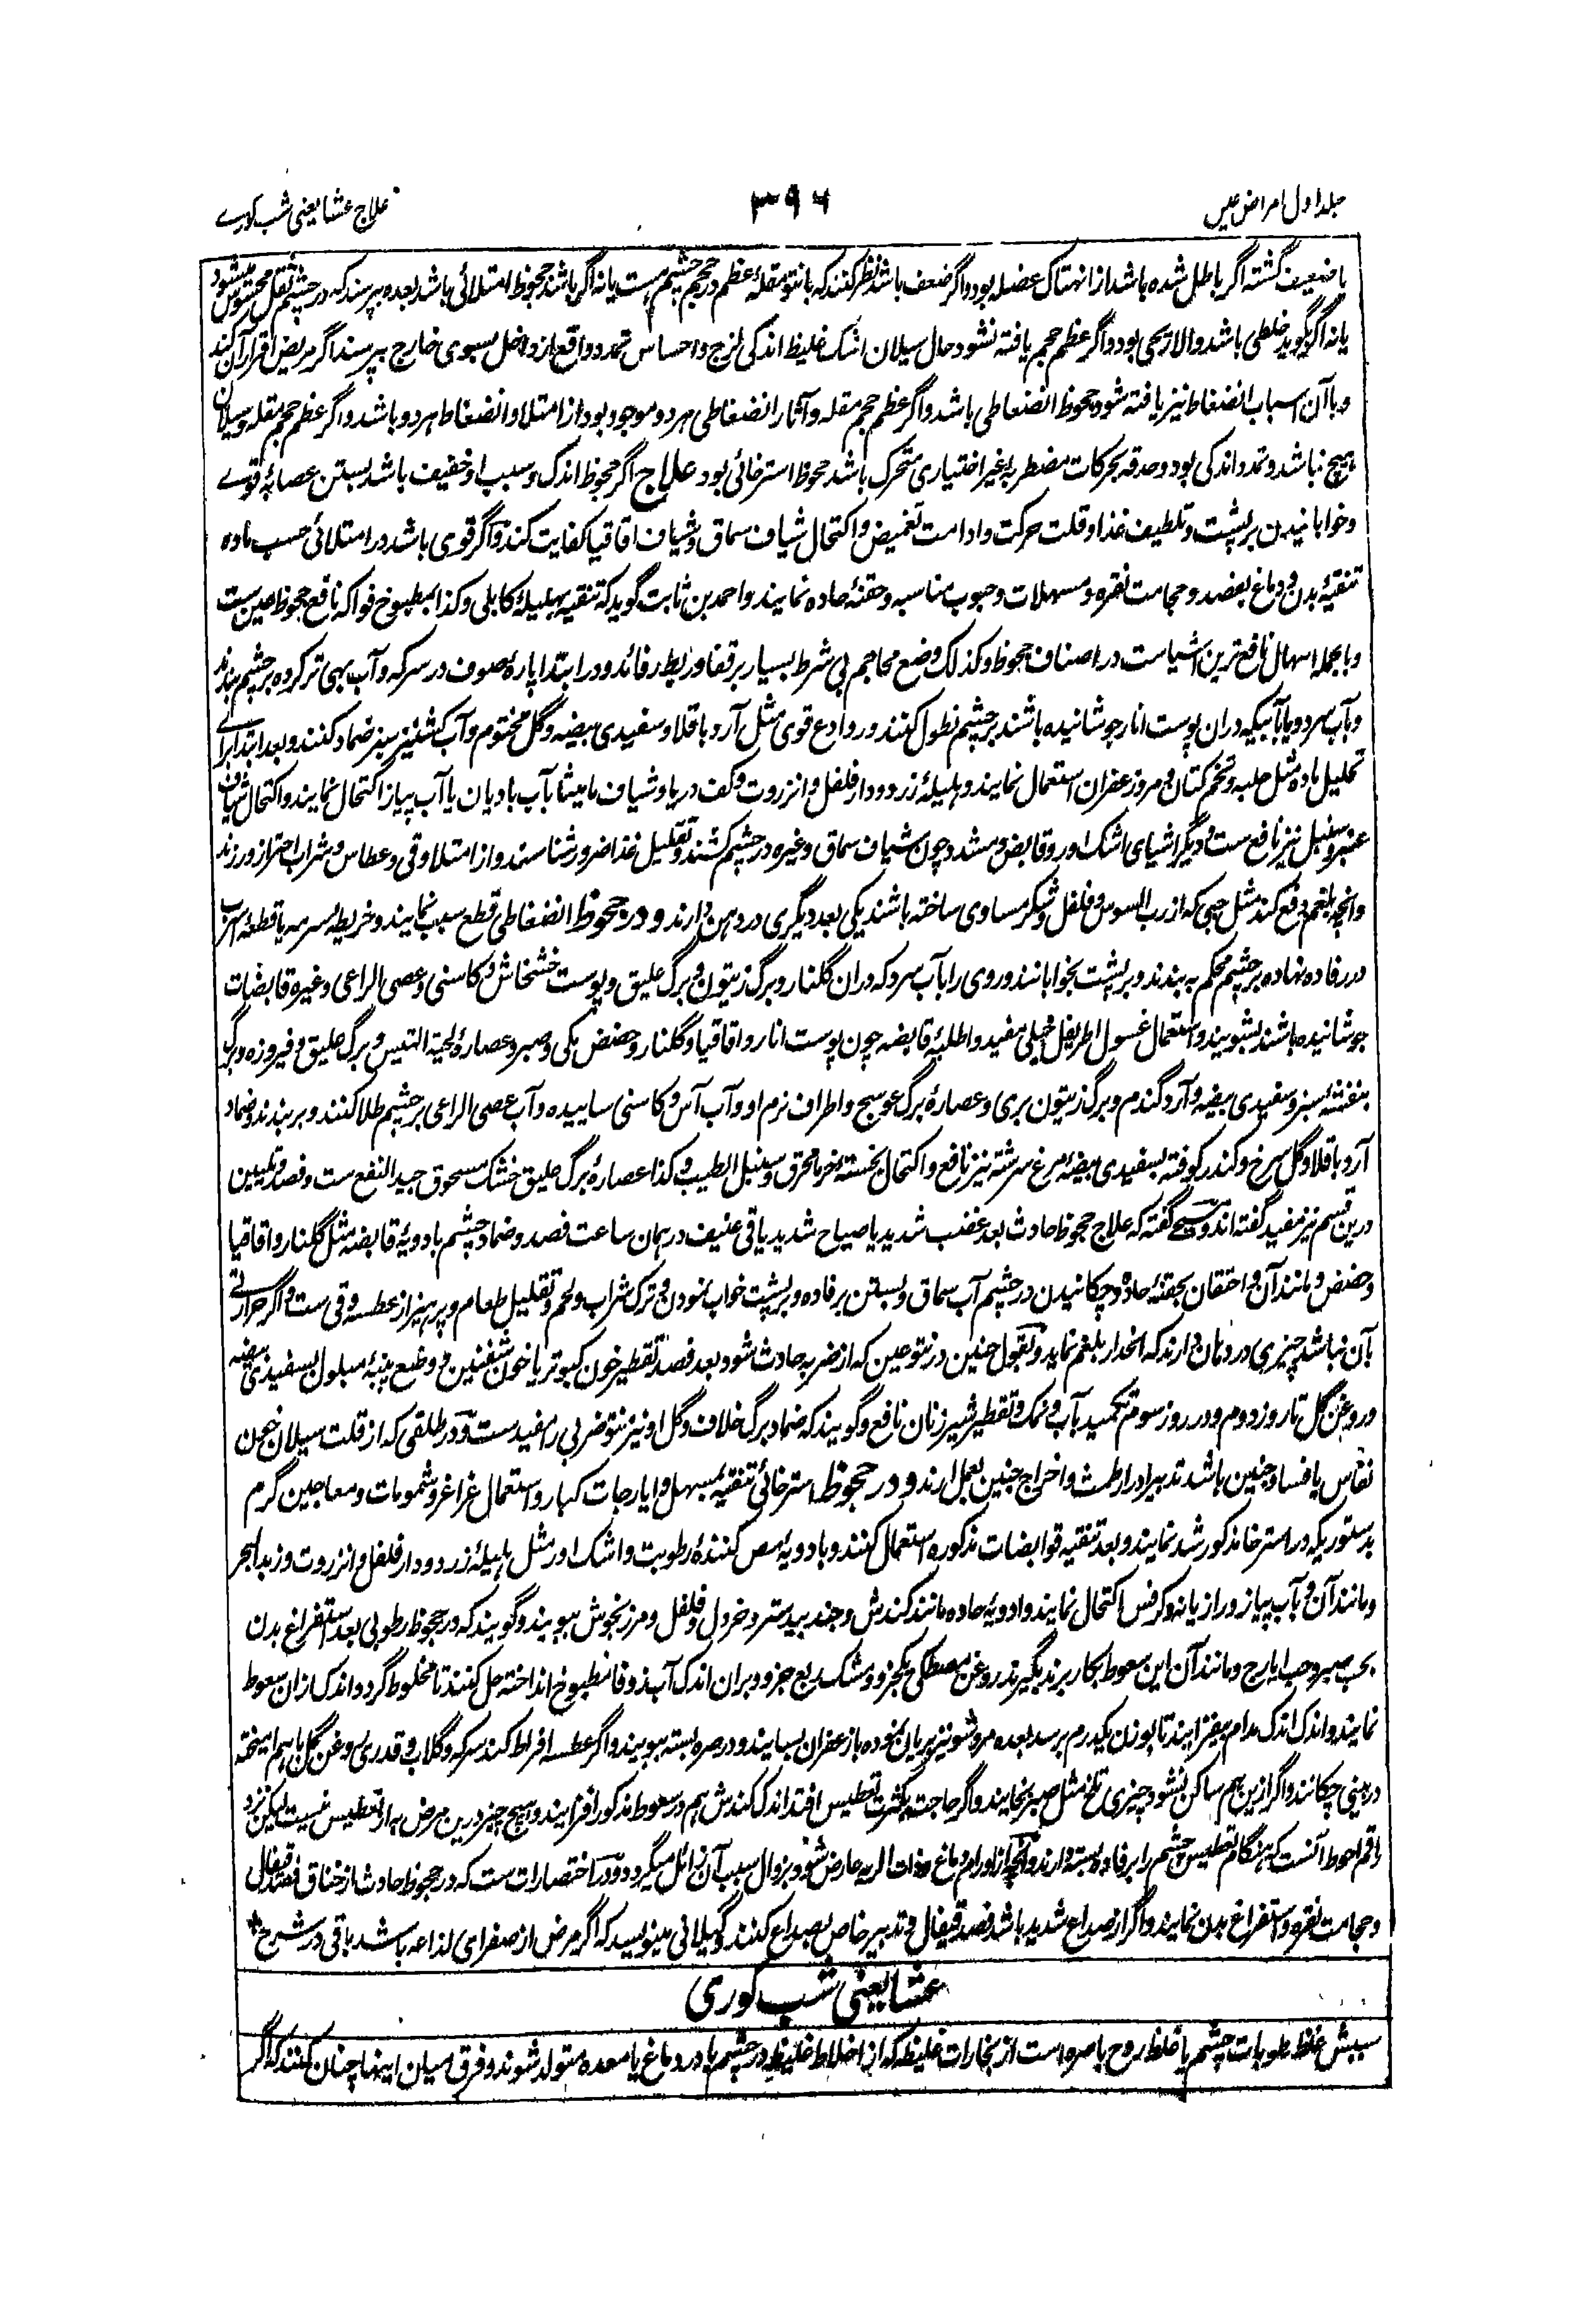 جلد اول امراض عین
۳۹۶
علاج عشا یعنی شب کوری
یا ضعیف گشته اگر باطل شده باشد از انهتاک عضله بود و اگر ضعف باشد نظر کنند که با نتو مقله عظم در حجم چشم هست یا نه اگر باشد جحوظ امتلائی باشد بعده بپرسند که در چشم ثقل محسوس میشود
یا نه اگر گوید خلطی باشد والا ریحی بود و اگر عظم حجم یافته نشود حال سیلان اشک غلیظ اندکی لزج و احساس تمدد واقع از داخل بسوی خارج بپرسند اگر مریض اقرار آن کند
و با آن اسباب انضغاط نیز یافته شود جحوظ انضغاطی باشد و اگر عظم حجم مقله و آثار انضغاطی هر دو موجود بود از امتلا و انضغاط هر دو باشد و اگر عظم حجم مقله و سیلان
هیچ نباشد و تمدد اندکی بود و حدقه بحرکات مضطربه غیر اختیاری متحرک باشد جحوظ استرخائی بود علاج اگر جحوظ اندک و سبب او خفیف باشد بستن عصابهٔ قوے
و خوابانیدن بر پشت و تلطیف غذا و قلت حرکت و ادامت تغمیض و اکتحال شیاف سماق و شیاف اقاقیا کفایت کند و اگر قوی باشد در امتلائی حسب ماده
تنقیهٔ بدن و دماغ بفصد و حجامت نقره و مسهلات و حبوب مناسبه و حقنهٔ حاده نمایند و احمد بن ثابت گوید که تنقیه بهلیلهٔ کابلی و کذا بمطبوخ فواکه نافع جحوظ عین ست
و بالجمله اسهال نافع ترین اشیاست در اصناف جحوظ و کذلک وضع محاجم بی شرط بسیار بر قفا و ربط رفائد و در ابتدا پارهٔ صوف در سرکه و آب بهی تر کرده بر چشم بندند
و بآب سرد و یا بآبیکه دران پوست انار جوشانیده باشند بر چشم نطول کنند و روادع قوی مثل آرد باقلا و سفیدی بیضه و گل مختوم و آب کشنیز سبز ضماد کنند و بعد ابتدا برای
تحلیل ماده مثل حلبه و تخم کتان و مر و زعفران استعمال نمایند و هلیلهٔ زرد و دارفلفل و انزروت و کف دریا و شیاف مامیثا بآب بادیان یا آب پیاز اکتحال نمایند و اکتحال شیاف
عنبر و سنبل نیز نافع ست و دیگر اشیای اشک اور و قابض و مشدد چون شیاف سماق و غیره در چشم کشند و تقلیل غذا ضرور شناسند و از امتلا و قی و عطاس و شراب احتراز ورزند
و انچه بلغم دفع کند مثل حبی که از رب السوس و فلفل و شکر مساوی ساخته باشند یکی بعد دیگری در دهن دارند و در جحوظ انضغاطی قطع سبب نمایند و خریطه سرمه یا قطعهٔ سرب
در رفاده نهاده بر چشم محکم به بندند و بر پشت بخوابانند و روی را بآب سرد که دران گلنار و برگ زیتون و برگ علیق و پوست خشخاش و کاسنی و عصی الراعی و غیره قابضات
جوشانیده باشند بشویند و استعمال غسول اطریفل خیلی مفید و اطلیهٔ قابضه چون پوست انار و اقاقیا و گلنار و حضض مکی و صبر و عصارهٔ لحیة التیس و برگ علیق و فیروزه و برگ
بنفشه سبز و سفیدی بیضه و آرد گندم و برگ زیتون بری و عصارهٔ برگ عوسج و اطراف نرم او و آب آس و کاسنی ساییده و آب عصی الراعی بر چشم طلا کنند و بربندند و ضماد
آرد باقلا و گل سرخ و کندر کوفته بسفیدی بیضهٔ مرغ سرشته نیز نافع و اکتحال بخستهٔ خرما محرق و سنبل الطیب و کذا عصارهٔ برگ علیق خشک مسحوق جید النفع ست و فصد و تلیین
درین قسم نیز مفید گفته اند و مسیحی گفته که علاج جحوظ حادث بعد غضب شدید یا صیاح شدید یا قی عنیف در همان ساعت فصد و ضماد چشم بادویهٔ قابضه مثل گلنار و اقاقیا
و حضض و مانند آن و احتقان بحقنهٔ حاده و چکانیدن در چشم آب سماق و بستن برفاده و بر پشت خواب نمودن و ترک شراب و لحم و تقلیل طعام و پرهیز از عطسه و قی ست و اگر حرارتی
بآن نباشد چیزی در دهان دارند که انحدار بلغم نماید و بقول حنین در نتو عین که از ضربه حادث شود بعد فصد تقطیر خون کبوتر یا خون شفنین و وضع پنبهٔ مبلول بسفیدی بیضه
و روغن گل تا روز دوم و در روز سوم تکمید بآب و نمک و تقطیر شیر زنان نافع و گویند که ضماد برگ خلاف و گل او نیز نتو ضربی را مفید ست و در طلقی که از قلت سیلان خون
نفاس یا فساد جنین باشد تدبیر ادرار طمث و اخراج جنین بعمل ارند و در جحوظ استرخائی تنقیه بمسهل و ایارجات کبار و استعمال غراغر و شمومات و معاجین گرم
بدستوریکه در استرخا مذکور شد نمایند و بعد تنقیه قوابضات مذکوره استعمال کنند و بادویهٔ مص کنندهٔ رطوبت و اشک اور مثل هلیلهٔ زرد و دارفلفل و انزروت و زبد البحر
و مانند آن و بآب پیاز و رازیانه و کرفس اکتحال نمایند و ادویهٔ حاده مانند کندش و جند بیدستر و خردل و فلفل و مرزنجوش ببویند و گویند که در جحوظ رطوبی بعد استفراغ بدن
بحب صبر و حب ایارج و مانند آن این سعوط بکار برند بگیرند روغن مصطگی یکجزو و مشک ربع جزو و بران اندک آب زوفا مطبوخ انداخته حل کنند تا مخلوط گردد و اندک ازان سعوط
نمایند و اندک اندک مدام بیفزایند تا بوزن یکدرم برسد بعده مر و شونیز بریان نموده با زعفران بسایند و در صره بسته ببویند و اگر عطسه افراط کند سرکه و گلاب و قدری روغن گل باهم امیخته
در بینی چکانند و اگر ازین هم ساکن نشود چیزی تلخ مثل صبر بخایند و اگر حاجت بکثرت تعطیس افتد اندک کندش هم در سعوط مذکور افزایند و هیچ چیز درین مرض به از تعطیس نیست لیکن نزد
راقم احوط آنست که هنگام تعطیس چشم را برفاده بسته دارند و انچه از اورام دماغ و ذات الریه عارض شود بزوال سبب آن زائل میگردد و در اختصارات ست که در جحوظ حادث از خناق فصد قیفال
و حجامت نقره و استفراغ بدن نمایند و اگر از صداع شدید باشد فصد قیفال و تدبیر خاص بصداع کنند و گیلانی مینویسد که اگر مرض از صفرای لذاعه باشد باقی در شرح *
عشا یعنی شب کوری
سببش غلظ رطوبات چشم یا غلظ روح باصره است از بخارات غلیظه که از اخلاط غلیظه در چشم یا در دماغ یا معده متولد شوند و فرق میان اینها چنان کنند که اگر